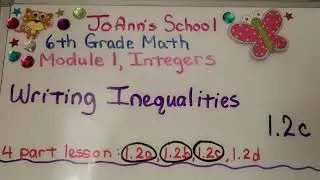 JoAnn's School
6th Grade Math
Module 1, Integers
Writing Inequalities
1.2c
4 part lesson: 1.2a, 1.2b, 1.2c, 1.2d